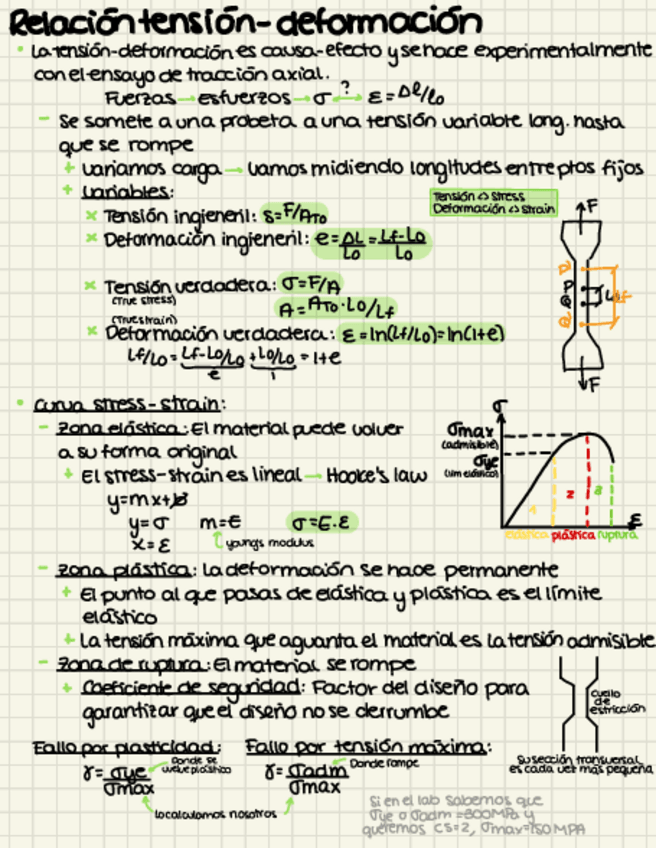 Relación tensión-deformación
• La tensión-deformación es causa-efecto y se hace experimentalmente
con el ensayo de tracción axial.
Fuerzas → esfuerzos → σ →? ε = Δl/l₀
- Se somete a una probeta a una tensión variable long. hasta
que se rompe
+ Variamos carga → vamos midiendo longitudes entre ptos fijos
+ Variables:
Tensión ⇔ Stress
Deformación ⇔ Strain
× Tensión ingieneril: s = F/A_T0
× Deformación ingieneril: e = ΔL/L0 = Lf-L0/L0
× Tensión verdadera: σ = F/A
(True stress)
A = A_T0 · L0/Lf
(True strain)
× Deformación verdadera: ε = ln(Lf/L0) = ln(1+e)
Lf/L0 = Lf-L0/L0 + L0/L0 = 1+e
e 1
F
P
P
Q
Q
Lf
F
• Curva stress-strain:
- Zona elástica: El material puede volver
a su forma original
+ El stress-strain es lineal → Hooke's law
y=mx+b
y=σ m=E σ=E·ε
x=ε youngs modulus
σ
σmax
(admisible)
σye
(lim elástico)
1 2 3
ε
elástica plástica ruptura
- Zona plástica: La deformación se hace permanente
+ El punto al que pasas de elástica y plástica es el límite
elástico
+ La tensión máxima que aguanta el material es la tensión admisible
- Zona de ruptura: El material se rompe
+ Coeficiente de seguridad: Factor del diseño para
garantizar que el diseño no se derrumbe
cuello
de
estricción
Su sección transversal
es cada vez más pequeña
Fallo por plasticidad: Fallo por tensión máxima:
γ = σye/σmax Donde se vuelve plástico
γ = σadm/σmax Donde rompe
Lo calculamos nosotros
Si en el lab sabemos que
σye o σadm = 300MPa y
queremos CS=2, σmax=150MPA